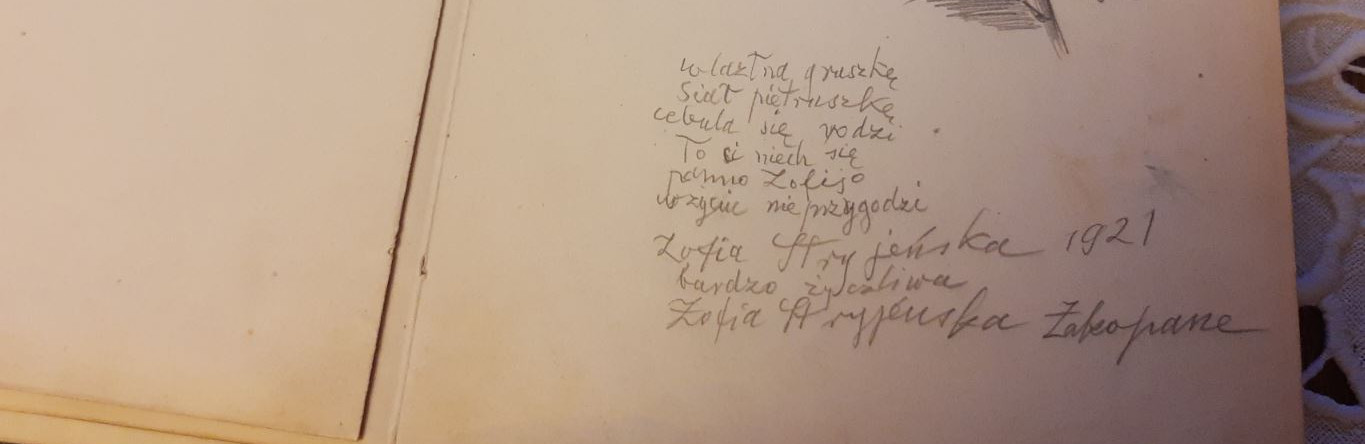 wlazł na gruszkę
siał pietruszkę
cebula się rodzi
To ci niech się
panno Zofijo
w życiu nie przygodzi
Zofia Stryjeńska 1921
bardzo życzliwa
Zofia Stryjeńska Zakopane